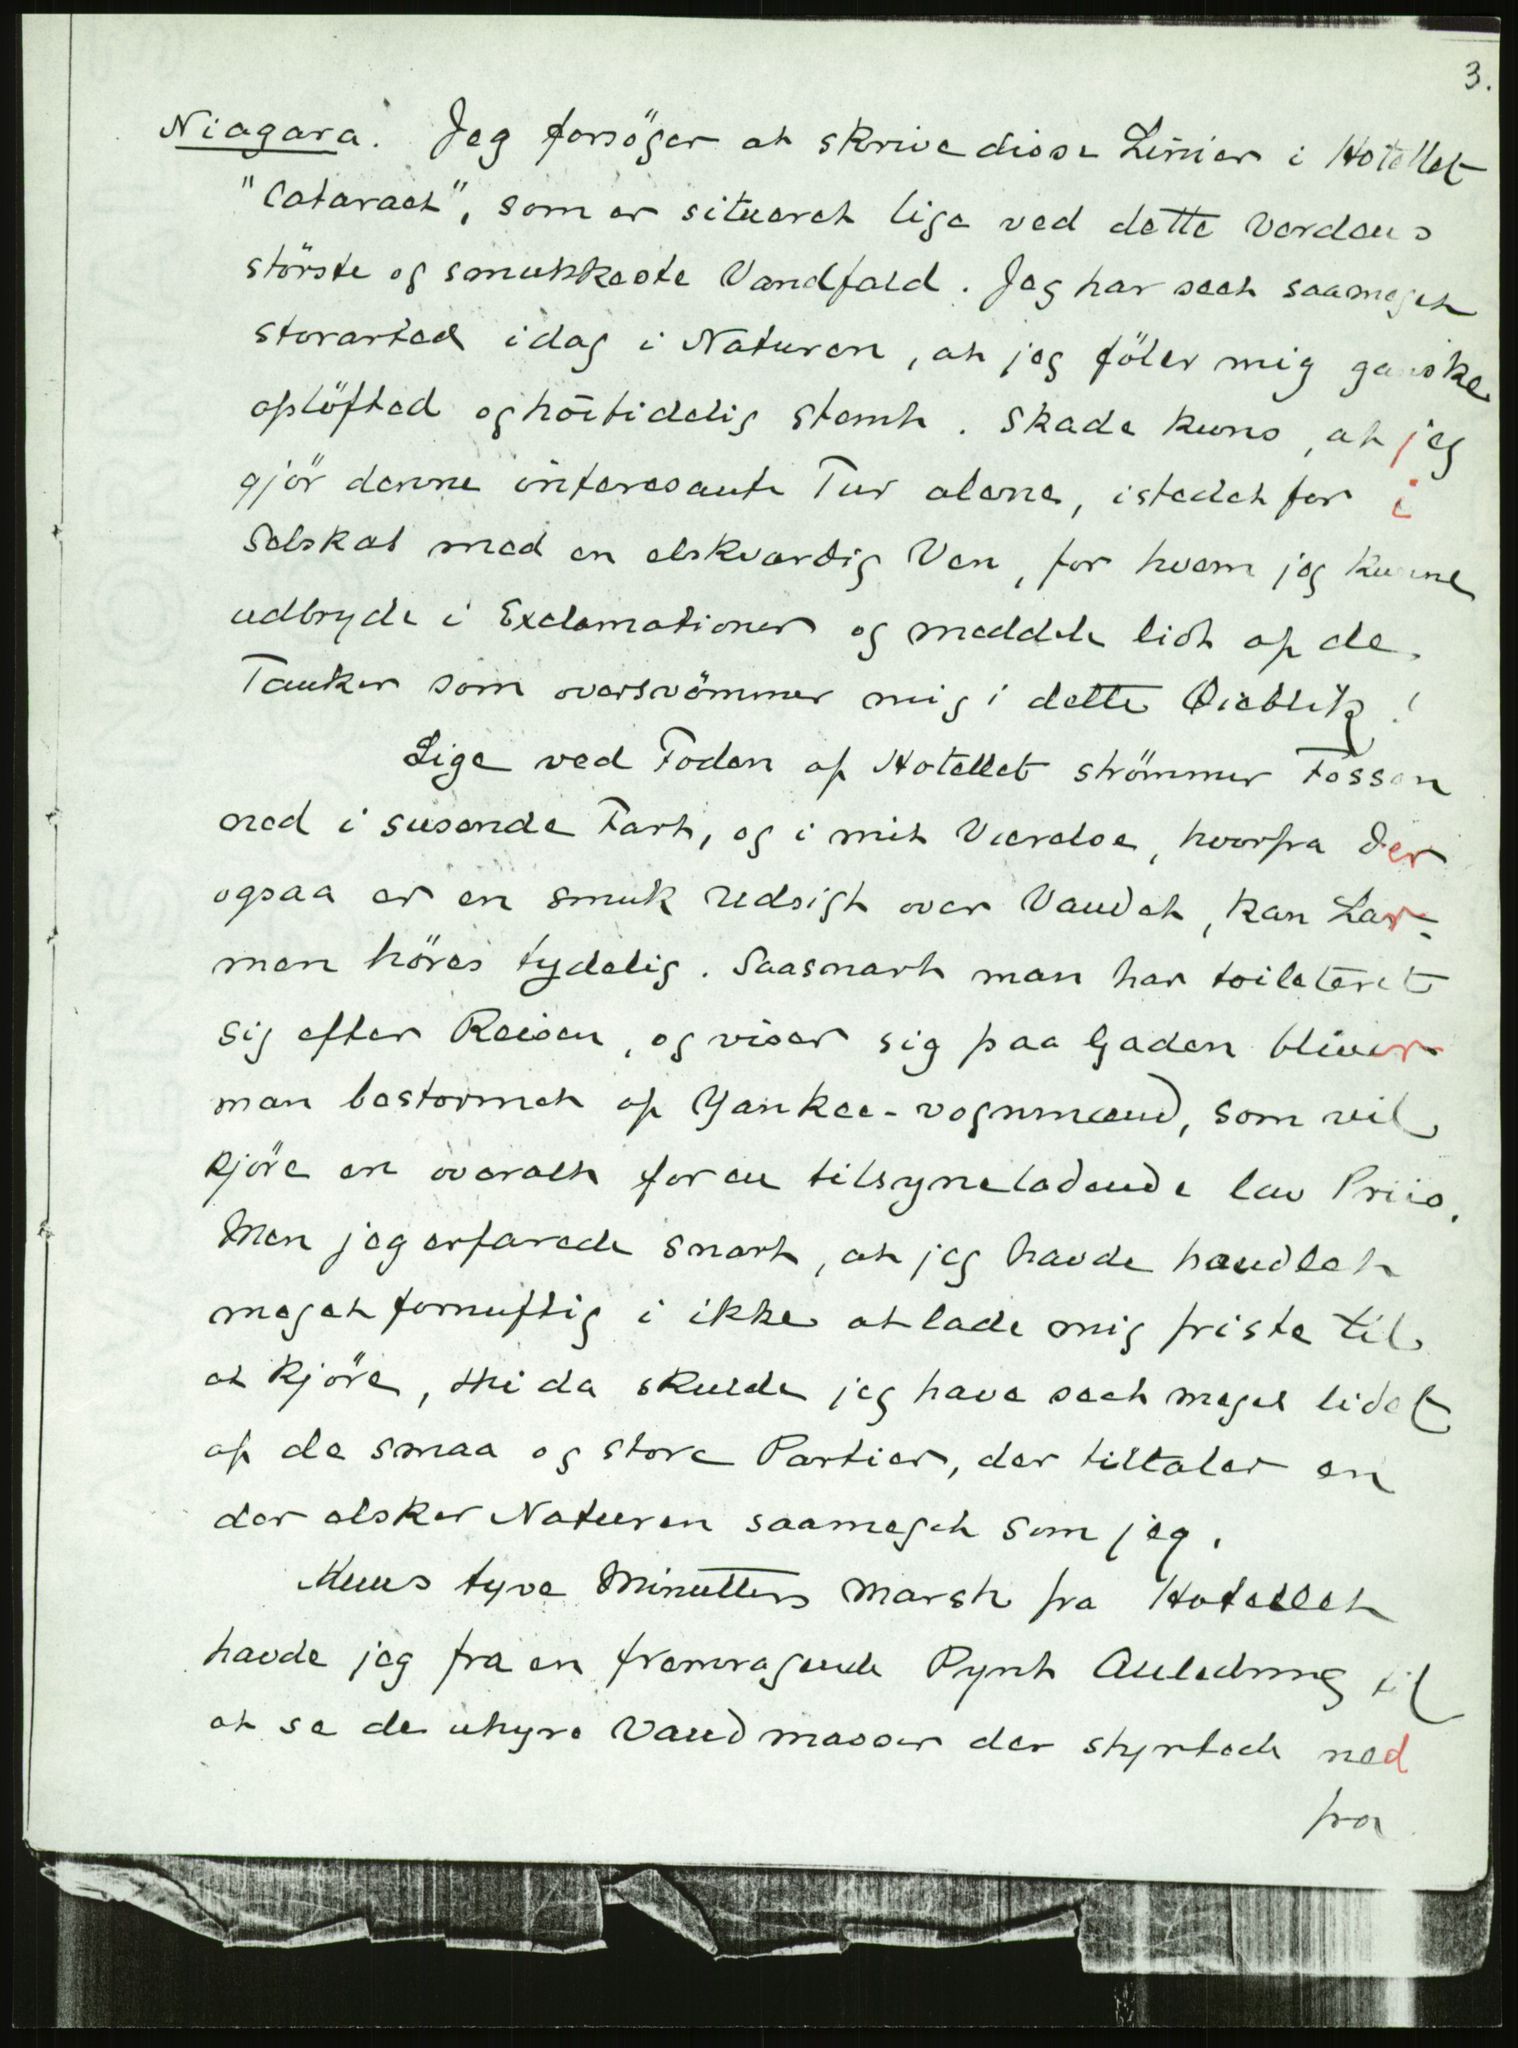 3.
Niagara. Jeg forsöger at skrive disse Linier i Hotellet
"Cataract", som er situeret lige ved dette Verdens
störste og smukkeste Vandfald. Jeg har seet saameget
storartet idag i Naturen, at jeg föler mig ganske
oplöftet og höitidelig stemt. Skade kuns, at jeg
gjör denne interesante Tur alene, istedet for i
Selskab med en elskverdig Ven, for hvem jeg kunne
udbryde i Exclamationer og meddele lidt af de
Tanker som oversvömmer mig i dette Øieblik!
Lige ved Foden af Hotellet strömmer Fossen
ned i susende Fart, og i mit Værelse, hvorfra der
ogsaa er en smuk Udsigt over Vandet, kan Lar-
men höres tydelig. Saasnart man har toileteret
sig efter Reisen, og viser sig paa Gaden bliver
man bestormet af Yankee-vognmænd, som vil
kjöre en overalt for en tilsyneladende lav Priis.
Men jeg erfarede snart, at jeg havde handlet
meget fornuftig i ikke at lade mig friste til
at kjöre, thi da skulde jeg have seet meget lidet
af de smaa og store Partier, der tiltaler en
der elsker Naturen saameget som jeg.
Kuns tyve Minutters Marsh fra Hotellet
havde jeg fra en fremragende Pynt Anledning til
at se de uhyre Vandmasser der styrtede ned
fra